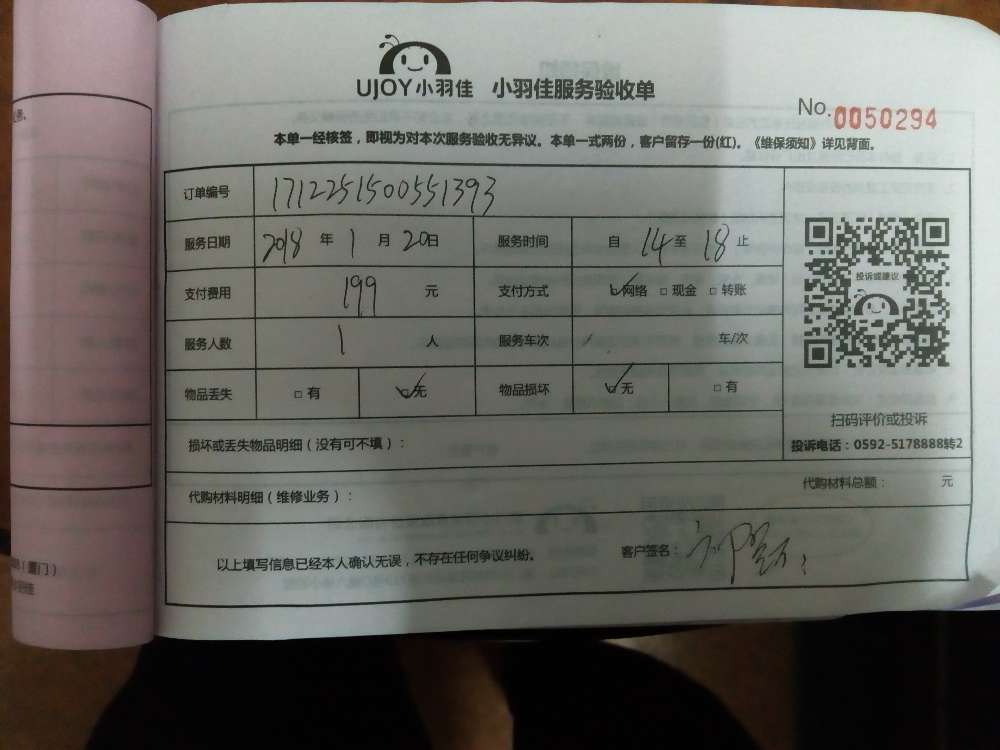 UJOY小羽佳 小羽佳服务验收单
No.0050294
本单一经核签，即视为对本次服务验收无异议。本单一式两份，客户留存一份(红)。《维保须知》详见背面。
订单编号 171225150055​1393
服务日期 2018 年 1 月 20 日 服务时间 自 14 至 18 止
支付费用 199 元 支付方式 ☑网络 □现金 □转账
服务人数 1 人 服务车次 / 车/次
物品丢失 □有 ☑无 物品损坏 ☑无 □有
投诉或建议
扫码评价或投诉
投诉电话：0592-5178888转2
损坏或丢失物品明细（没有可不填）：
代购材料明细（维修业务）： 代购材料总额： 元
以上填写信息已经本人确认无误，不存在任何争议纠纷。 客户签名：
厦门）